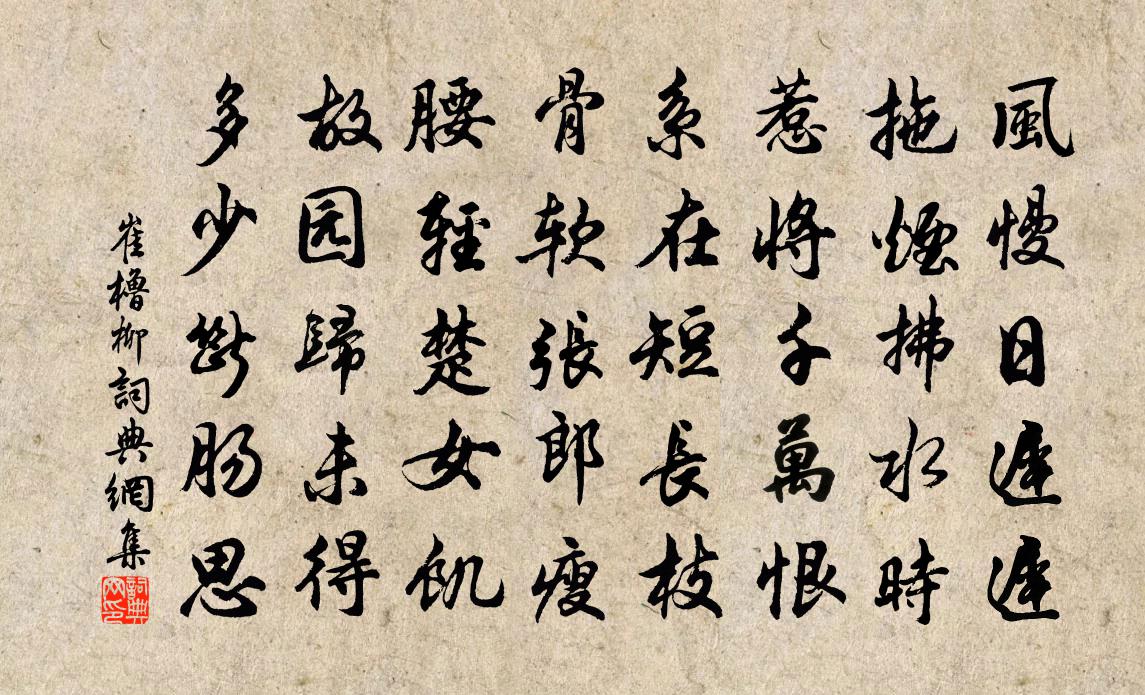 風慢日遲遲
拖煙拂水時
惹將千萬恨
系在短長枝
骨軟張郎瘦
腰輕楚女飢
故园歸未得
多少斷腸思
崔櫓柳詞典網集
詞典网印